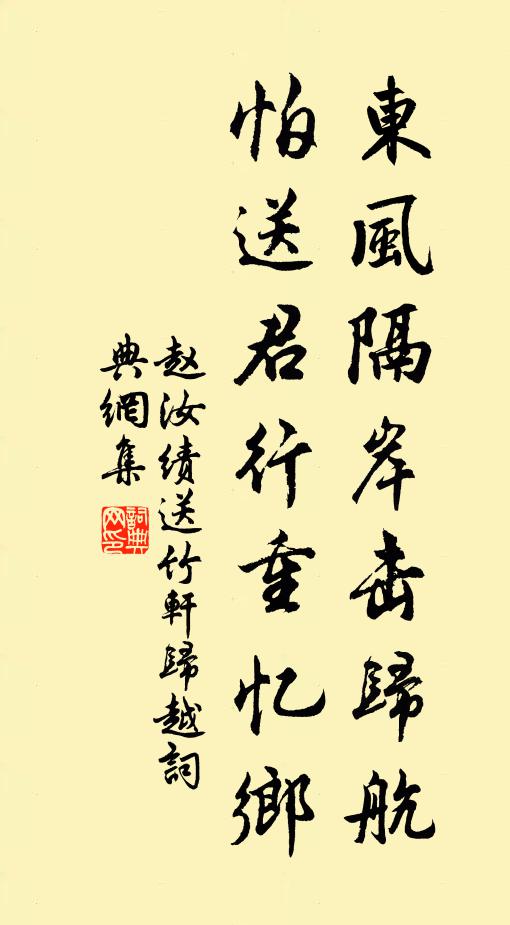 東風隔岸击歸航
怕送君行重忆鄉
赵汝绩送竹軒歸越詞
典網集
詞典
网印